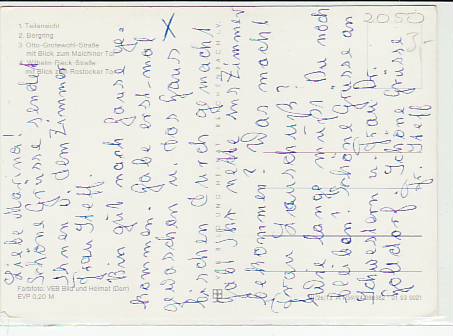 1 Teilansicht
2 Bergring
3 Otto-Grotewohl-Straße
mit Blick zum Malchiner Tor
4 Wilhelm-Pieck-Straße
mit Blick zum Rostocker Tor
2050
3,-
Liebe Marina!
Schöne Grüsse sendet
Ihnen v. dem Zimmer
Frau Steff.
Bin gut nach Hause ge-
kommen. Habe erst mal
gewaschen u. das Haus
bischen durch gemacht
Habt Ihr nette ins Zimmer
bekommen? Was macht
Frau
Wie lange müßt Du noch
bleiben. Schöne Grüsse an
Schwestern u. Frau Dr.
Schöne Grüsse
Fr. Steff
BILD UND HEIMAT REICHENBACH I. V.
Farbfoto: VEB Bild und Heimat (Darr)
EVP 0,20 M
01 03 0021